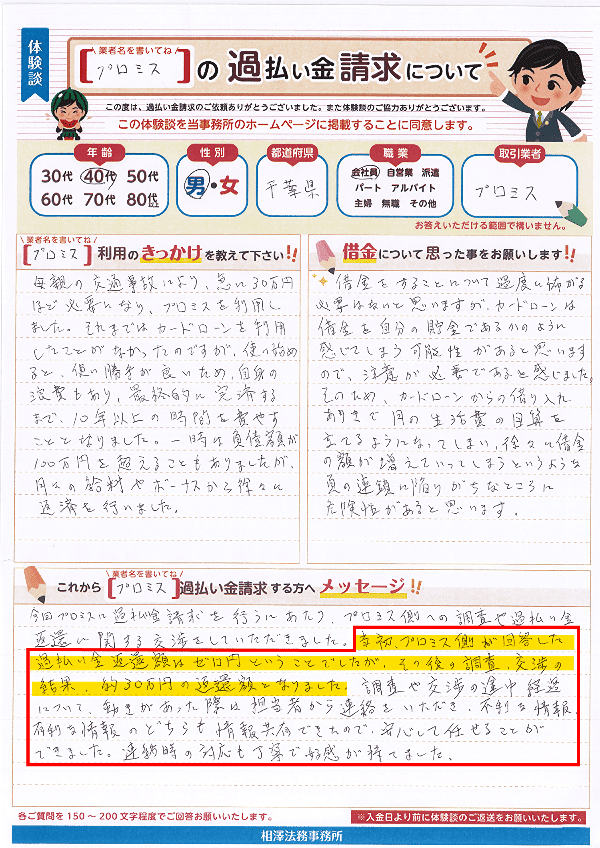 体験談
業者名を書いてね
[プロミス]の過払い金請求について
この度は、過払い金請求のご依頼ありがとうございました。また体験談のご協力ありがとうございます。
この体験談を当事務所のホームページに掲載することに同意します。
年齢
30代 40代 50代
60代 70代 80代以上
性別
男・女
都道府県
千葉県
職業
会社員 自営業 派遣
パート アルバイト
主婦 無職 その他
取引業者
プロミス
お答えいただける範囲で構いません。
業者名を書いてね
[プロミス]利用のきっかけを教えて下さい!!
母親の交通事故により、急に30万円
ほど必要になり、プロミスを利用し
ました。それまではカードローンを利用
したことがなかったのですが、使い始め
ると、使い勝手が良いため、自身の
浪費もあり、最終的に完済する
まで、10年以上の時間を費やす
こととなりました。一時は負債額が
100万円を超えることもありましたが、
月々の給料やボーナスから徐々に
返済を行いました。
借金について思った事をお願いします!!
借金をすることについて過度に怖がる
必要はないと思いますが、カードローンは
借金を自分の貯金であるかのように
感じてしまう可能性があると思います
ので、注意が必要であると感じました。
そのため、カードローンからの借り入れ
ありきで月の生活費の目算を
立てるようになってしまい、徐々に借金
の額が増えていってしまうというような
負の連鎖に陥りがちなところに
危険性があると思います。
業者名を書いてね
これから[プロミス]過払い金請求する方へメッセージ!!
今回プロミスに過払い金請求を行うにあたり、プロミス側への調査や過払い金
返還に関する交渉をしていただきました。当初、プロミス側が回答した
過払い金返還額はゼロ円ということでしたが、その後の調査、交渉の
結果、約30万円の返還額となりました。調査や交渉の途中経過
について、動きがあった際は担当者から連絡をいただき、不利な情報、
有利な情報のどちらも情報共有できたので、安心して任せることが
できました。連絡時の対応も丁寧で好感が持てました。
各ご質問を150〜200文字程度でご回答お願いいたします。
※入金日より前に体験談のご返送をお願いいたします。
相澤法務事務所